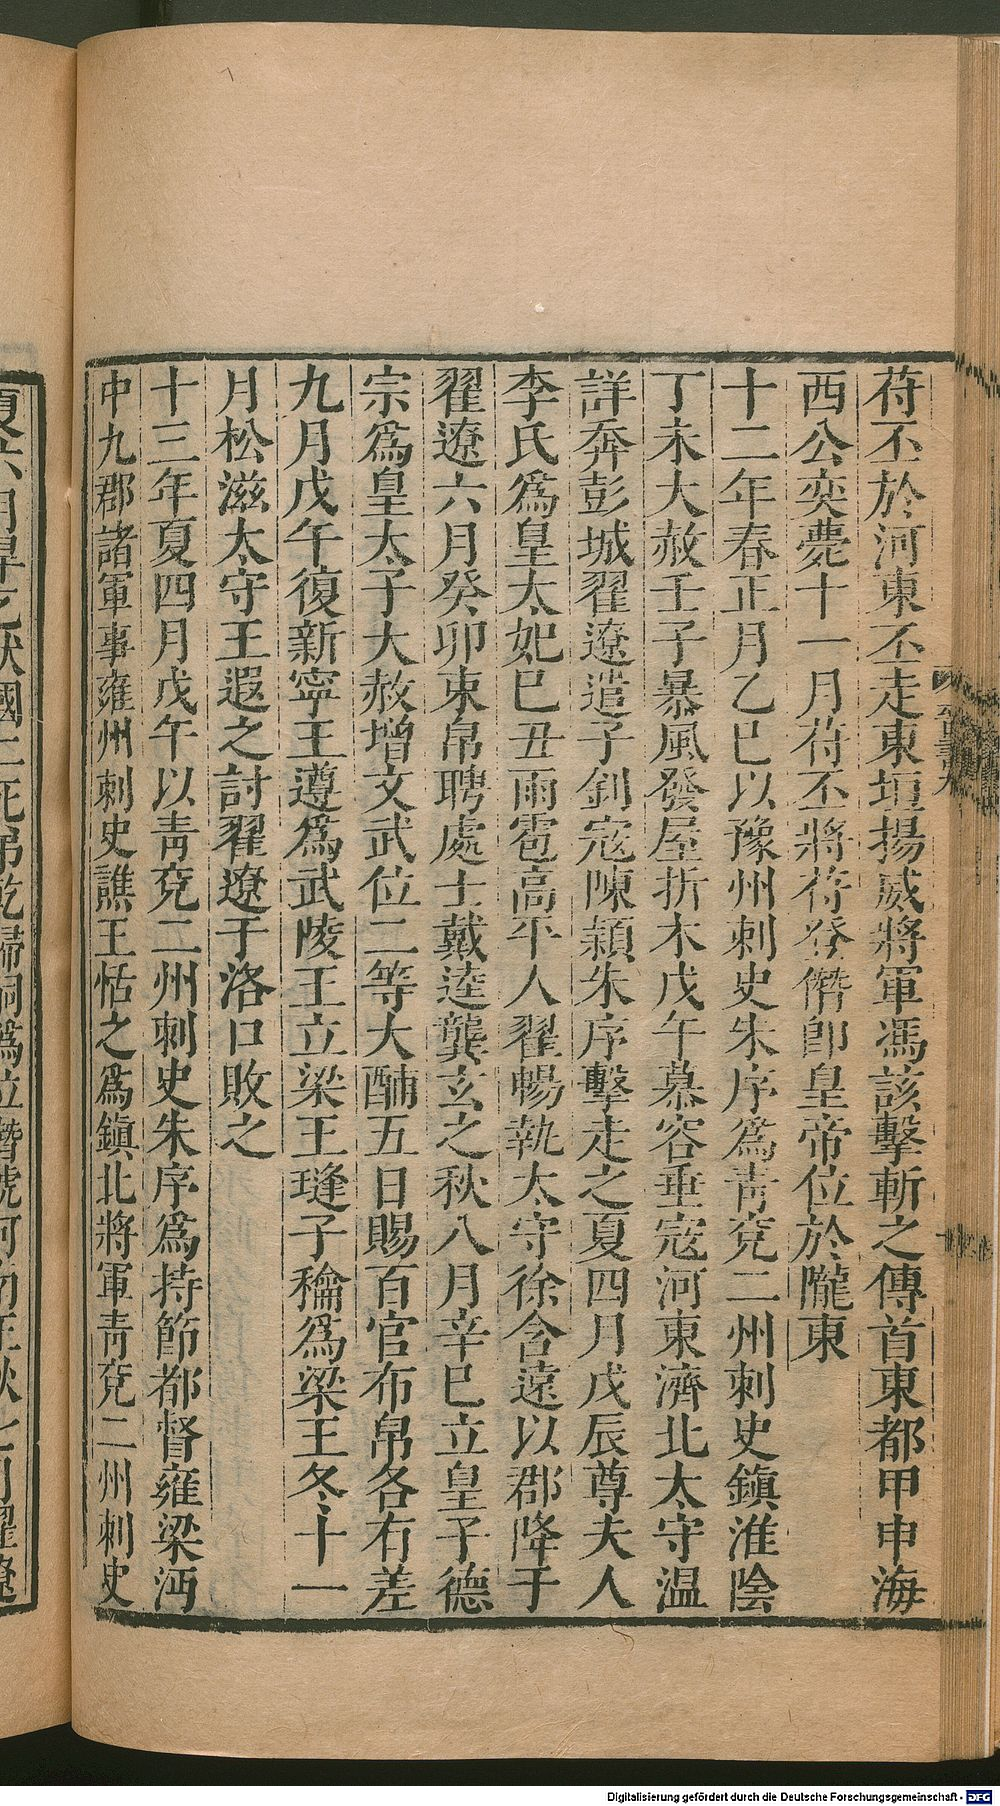 苻丕於河東丕走東垣揚威將軍馮該擊斬之傳首東都甲申海
西公奕薨十一月苻丕將苻登僭卽皇帝位於隴東
十二年春正月乙巳以豫州刺史朱序爲青兗二州刺史鎭淮陰
丁未大赦壬子暴風發屋折木戊午慕容垂寇河東濟北太守温
詳奔彭城翟遼遣子釗寇陳穎朱序擊走之夏四月戊辰尊夫人
李氏爲皇太妃巳丑雨雹高平人翟暢執太守徐含遠以郡降于
翟遼六月癸卯束帛聘處士戴逵龔玄之秋八月辛巳立皇子德
宗爲皇太子大赦增文武位二等大酺五日賜百官布帛各有差
九月戊午復新寧王遵爲武陵王立梁王㻴子龢爲梁王冬十一
月松滋太守王遐之討翟遼于洛口敗之
十三年夏四月戊午以青兗二州刺史朱序爲持節都督雍梁沔
中九郡諸軍事雍州刺史譙王恬之爲鎭北將軍青兗二州刺史
Digitalisierung gefördert durch die Deutsche Forschungsgemeinschaft - DFG